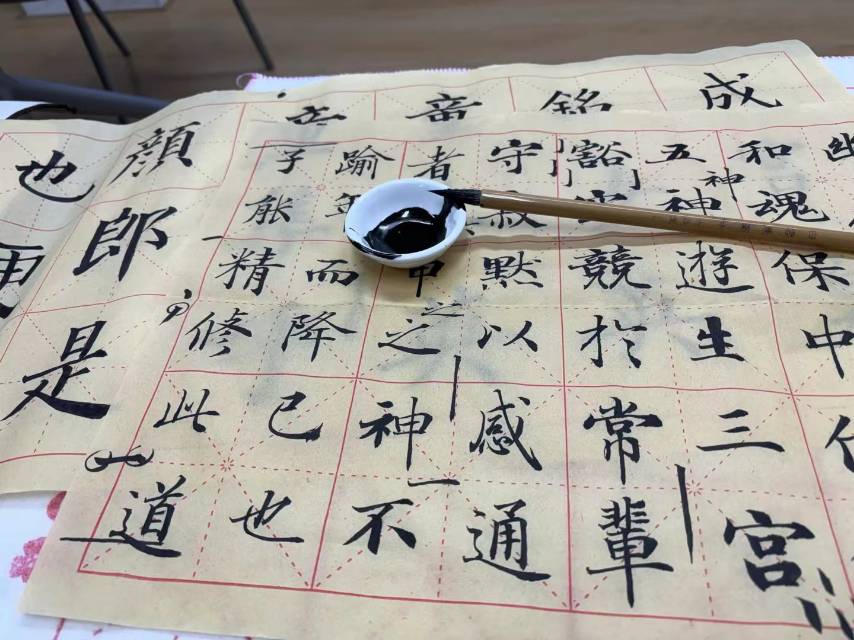 幽
和魂保中
五神遊生三宮
豁競於常輩
守寂默以感通
者之神不
踰而降已也
子能精修此道
神
之
成
銘
顏郎是
也